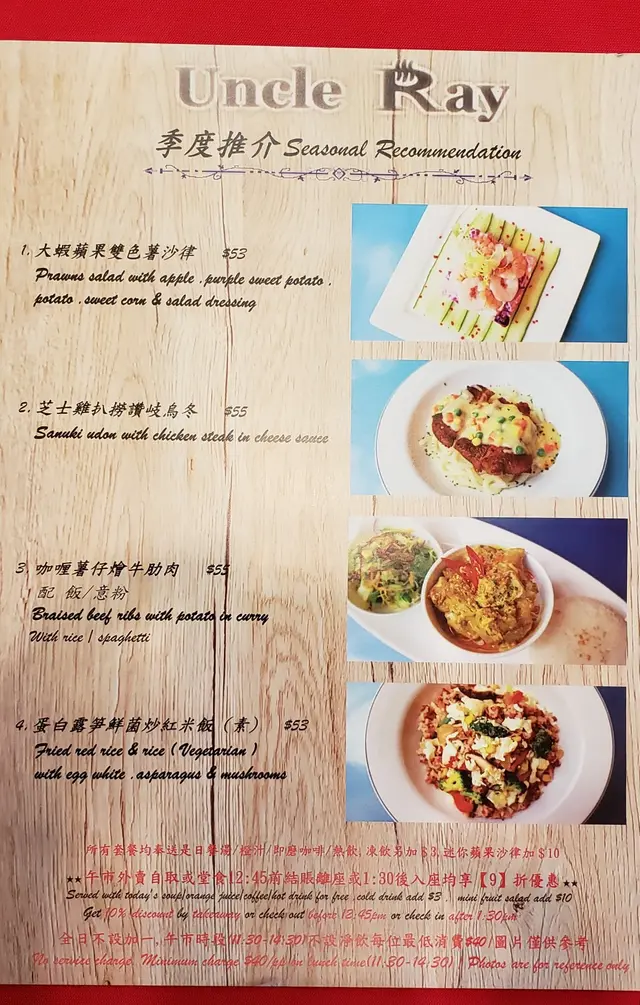 Uncle Ray
季度推介 Seasonal Recommendation
1. 大蝦蘋果雙色薯沙律 $53
Prawns salad with apple ,purple sweet potato ,
potato ,sweet corn & salad dressing
2. 芝士雞扒撈讚岐烏冬 $55
Sanuki udon with chicken steak in cheese sauce
3. 咖喱薯仔燴牛肋肉 $55
配 飯/意粉
Braised beef ribs with potato in curry
With rice / spaghetti
4. 蛋白露笋鮮菌炒紅米飯 (素) $53
Fried red rice & rice ( Vegetarian )
with egg white ,asparagus & mushrooms
所有套餐均奉送是日餐湯/橙汁/即磨咖啡/熱飲, 凍飲另加$3, 迷你蘋果沙律加$10
★★午市外賣自取或堂食12:45前結賬離座或1:30後入座均享【9】折優惠★★
Served with today's soup/orange juice/coffee/hot drink for free ,cold drink add $3 , mini fruit salad add $10
Get 10% discount by takeaway or check out before 12:45pm or check in after 1:30pm
全日不設加一, 午市時段(11:30-14:30)不設淨飲每位最低消費$40/圖片僅供參考
No service charge, Minimum charge $40/pp on lunch time(11:30-14:30) / Photos are for reference only